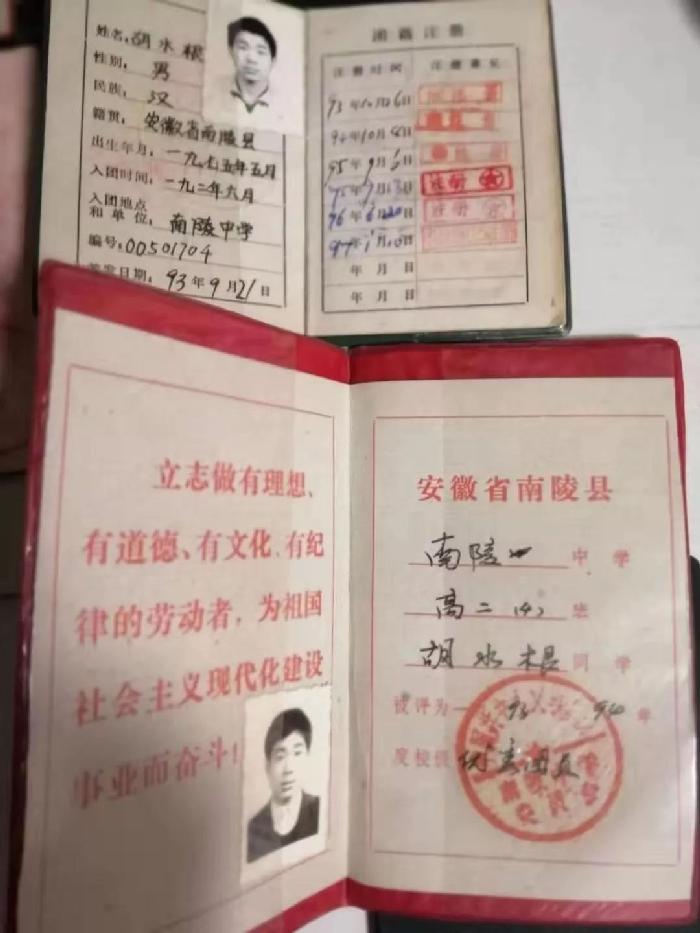 姓名：胡水根
性别：男
民族：汉
籍贯：安徽省南陵县
出生年月：一九七五年五月
入团时间：一九二年六月
入团地点
和单位：南陵中学
编号：00501704
签发日期：93年9月21日
团籍注册
注册时间 注册盖记
93年10月26日
94年10月8日
95年9月1日
95年9月13日 注册
96年6月20日 注册
97年1月10日
年 月 日
年 月 日
立志做有理想、
有道德、有文化、有纪
律的劳动者，为祖国
社会主义现代化建设
事业而奋斗！
安徽省南陵县
南陵一中学
高二（4）班
胡水根同学
被评为一93－94年
度校级优秀团员